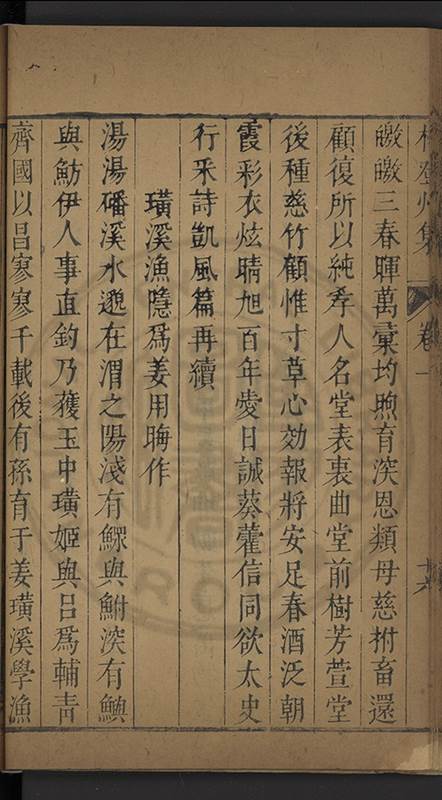 卷一
十六
皦皦三春暉萬彙均煦育深恩類母慈拊畜還
顧復所以純孝人名堂表裏曲堂前樹芳萱堂
後種慈竹顧惟寸草心効報將安足春酒泛朝
霞彩衣炫晴旭百年愛日誠葵藿信同欲太史
行采詩凱風篇再續
璜溪漁隱為姜用晦作
湯湯磻溪水邈在渭之陽淺有鰥與鮒深有鱮
與魴伊人事直釣乃獲玉中璜姬與呂為輔青
齊國以昌寥寥千載後有孫育于姜璜溪學漁